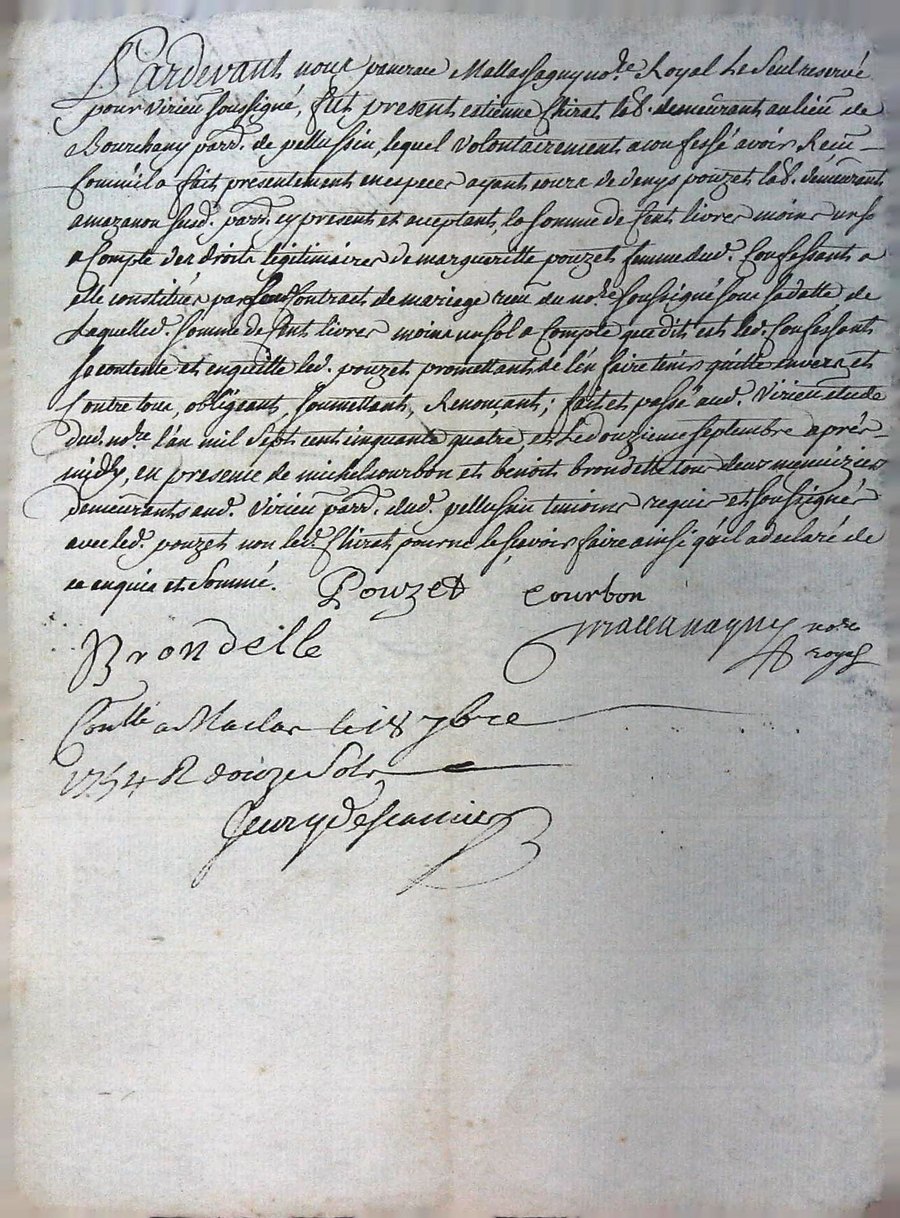 Pardevant nous pancrace Mallassagny no.re Royal Le Seul reservé
pour virieu soussigné, fut present estienne Chirat lab. demeurant au lieu de
Bourchany parr. de pellussin, lequel volontairement a confessé avoir Receu
Comm'il a fait presentement en especes ayant cours de denys pouzet lab. demeurant
a mazanon susd. parr. cy present et acceptant, la somme de Cent livres moins un sol
a Compte des droits legitimaires de margueritte pouzet femme dud. Confessant a
elle constitués par Leur Contract de mariage receu du no.re soussigné sous sa datte de
Laquelle d. somme de Cent livres moins un sol a Compte que dit est led. Confessant
se contente et en quitte led. pouzet promettant de l'en faire tenir quitte envers et
Contre tous, obligeant, soumettant, Renonçant; fait et passé aud. Virieu etude
dud. no.re l'an mil sept cent cinquante quatre, et Le douzieme septembre après-
midy, en presence de michel courbon et benoit brondelle tous deux menuiziers
demeurants aud. Virieu parr. dud. pellussin temoins requis et soussignés
avec led. pouzet non led. Chirat pour ne le sçavoir faire ainsi qu'il a declaré de
ce enquis et sommé. Pouzet Courbon
Brondelle Mallassagny no.re
royal
Conllé a Maclas le 18 7bre
1754 R douze Sols